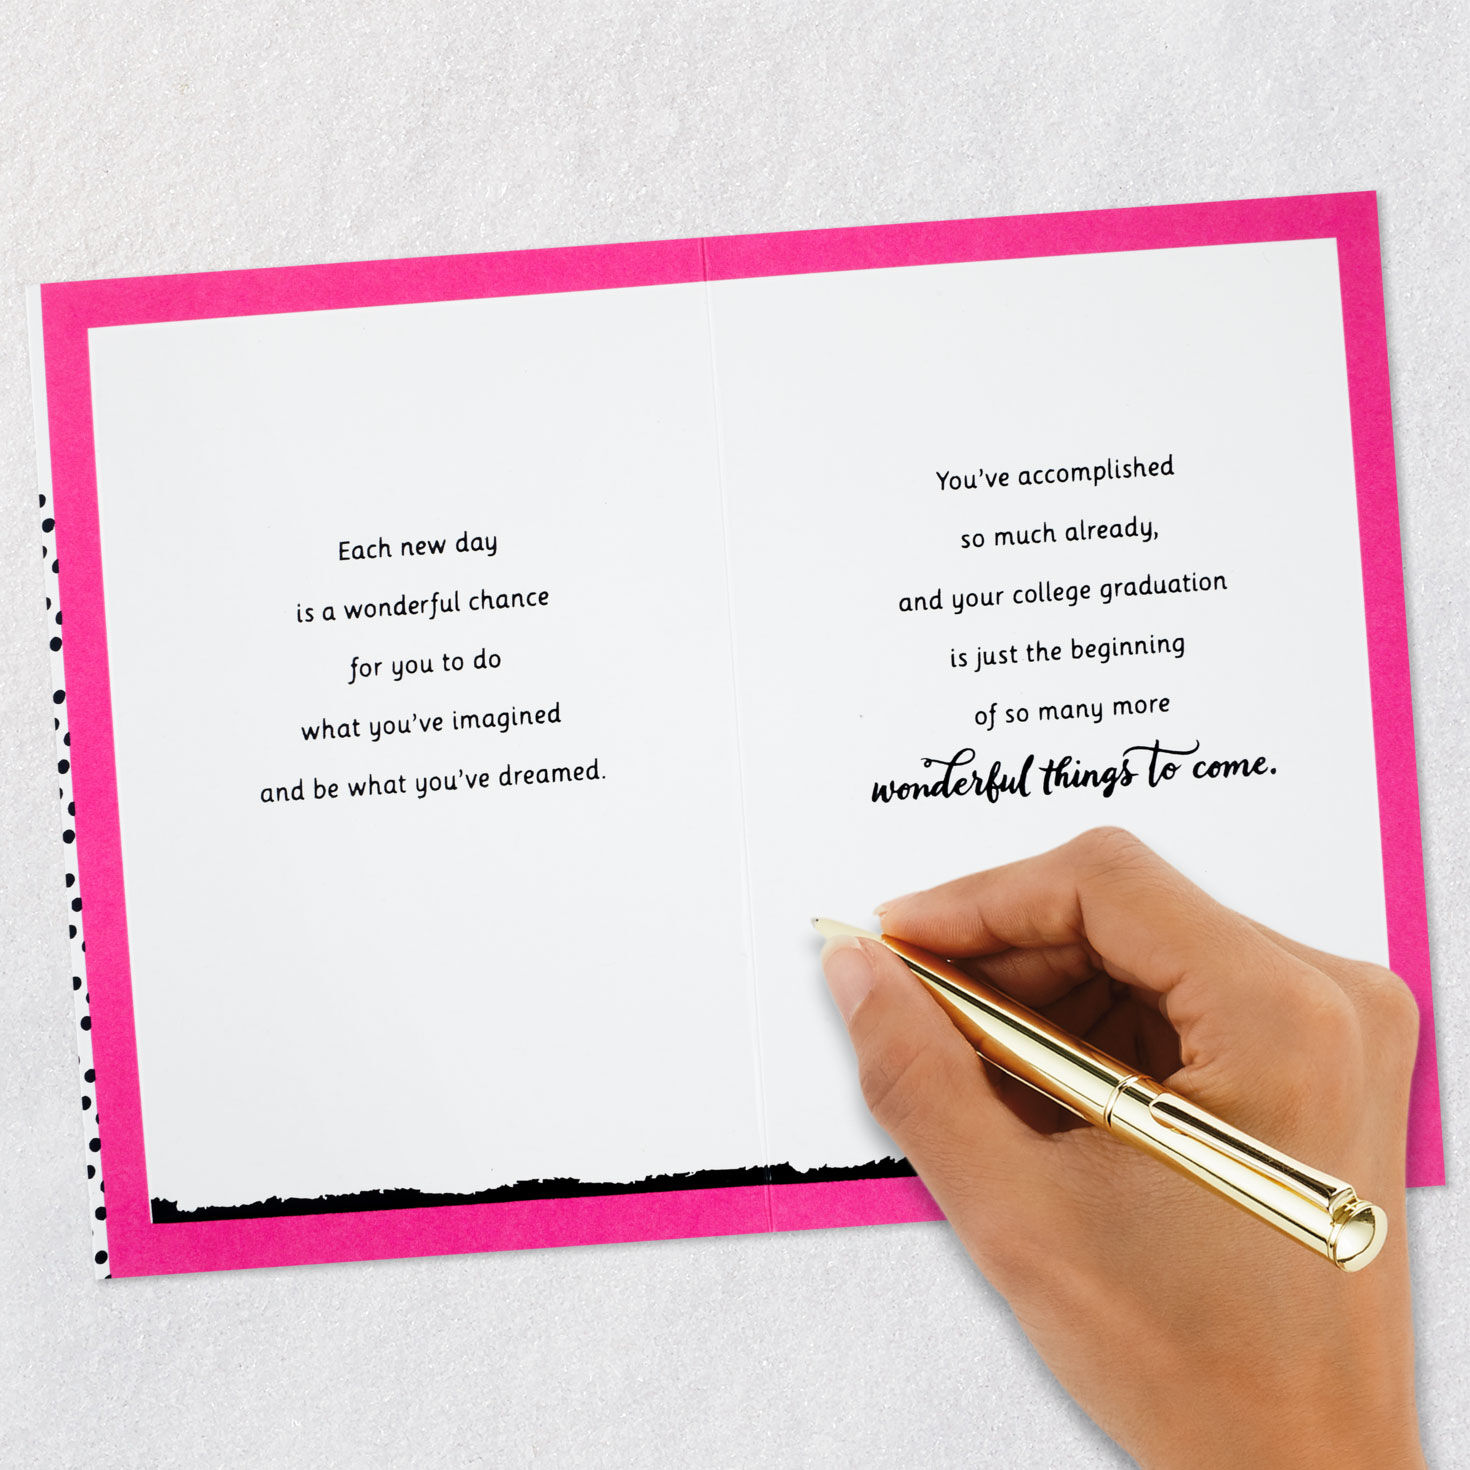 Each new day
is a wonderful chance
for you to do
what you've imagined
and be what you've dreamed.
You've accomplished
so much already,
and your college graduation
is just the beginning
of so many more
wonderful things to come.